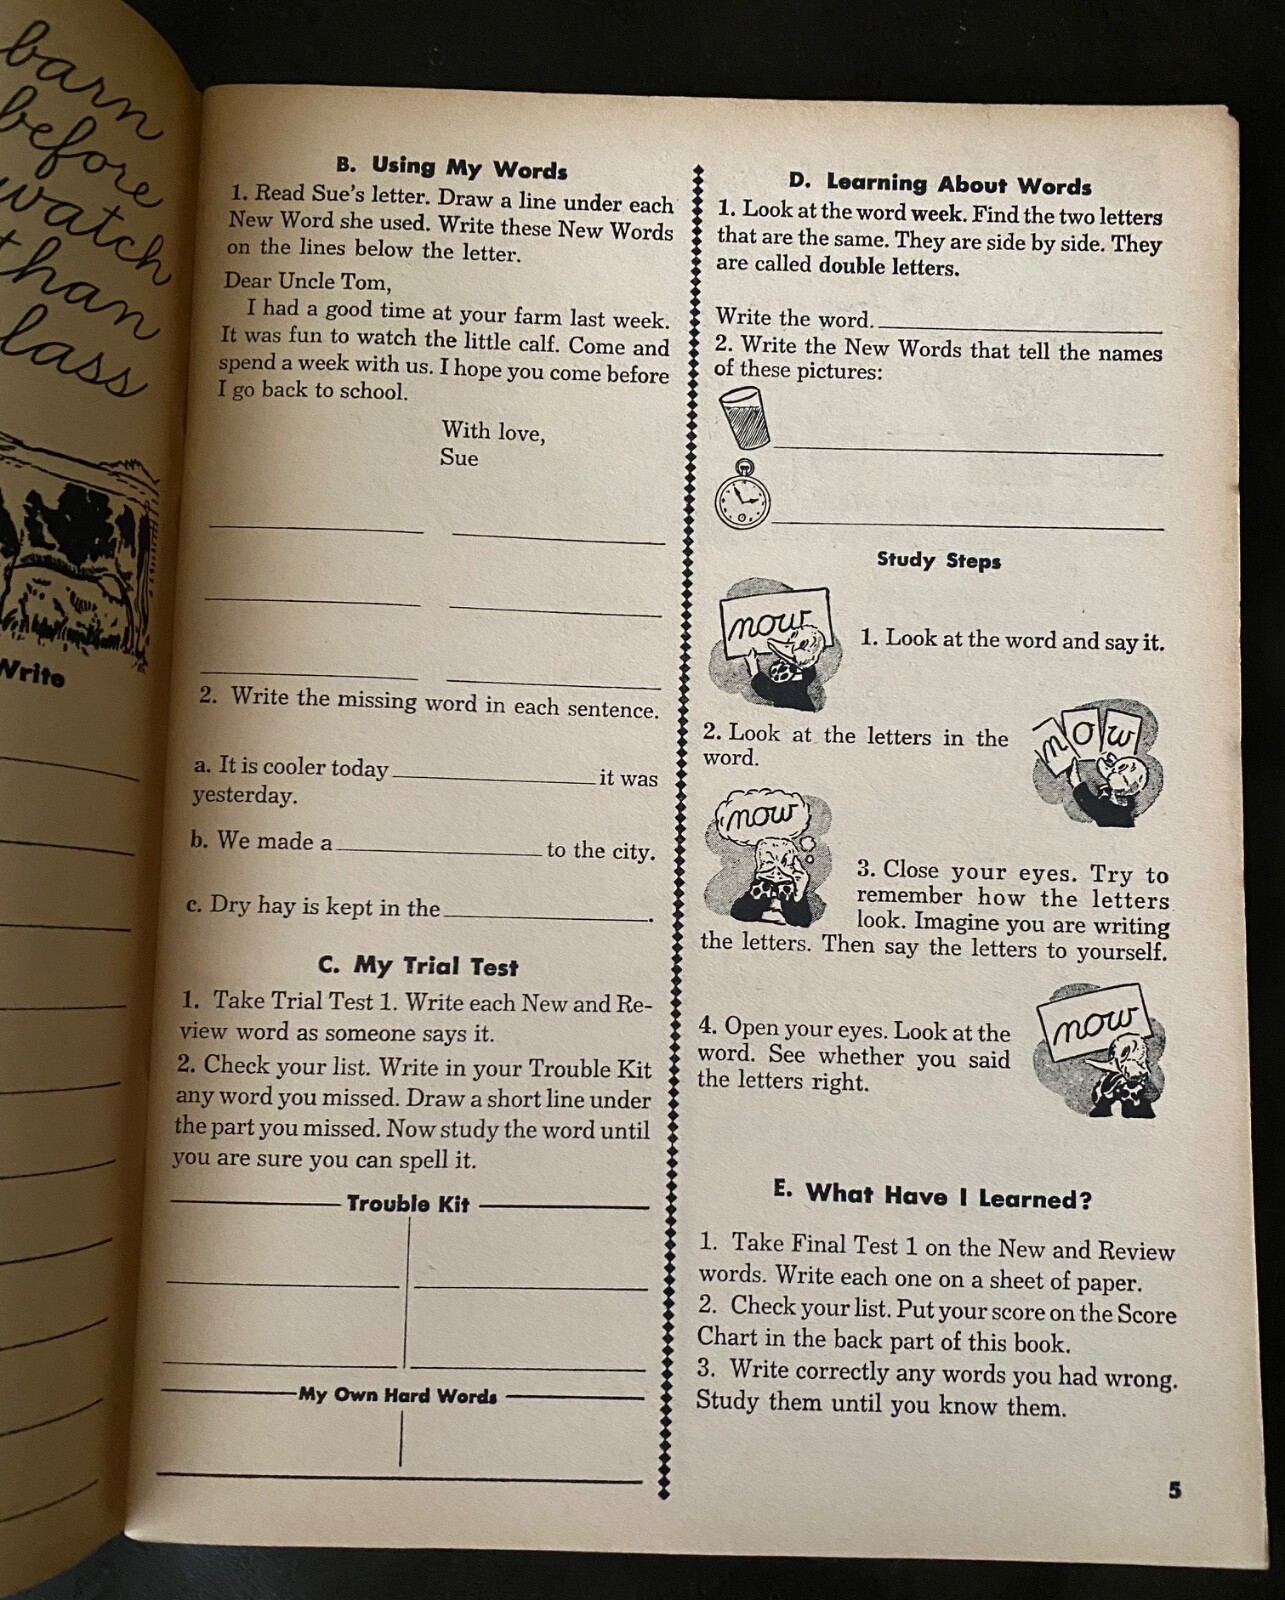 barn
before
watch
than
lass
Write
B. Using My Words
1. Read Sue's letter. Draw a line under each
New Word she used. Write these New Words
on the lines below the letter.
Dear Uncle Tom,
I had a good time at your farm last week.
It was fun to watch the little calf. Come and
spend a week with us. I hope you come before
I go back to school.
With love,
Sue
2. Write the missing word in each sentence.
a. It is cooler today it was
yesterday.
b. We made a to the city.
c. Dry hay is kept in the .
C. My Trial Test
1. Take Trial Test 1. Write each New and Re-
view word as someone says it.
2. Check your list. Write in your Trouble Kit
any word you missed. Draw a short line under
the part you missed. Now study the word until
you are sure you can spell it.
Trouble Kit
My Own Hard Words
D. Learning About Words
1. Look at the word week. Find the two letters
that are the same. They are side by side. They
are called double letters.
Write the word.
2. Write the New Words that tell the names
of these pictures:
Study Steps
now
1. Look at the word and say it.
2. Look at the letters in the
word.
now
now
3. Close your eyes. Try to
remember how the letters
look. Imagine you are writing
the letters. Then say the letters to yourself.
4. Open your eyes. Look at the
word. See whether you said
the letters right.
now
E. What Have I Learned?
1. Take Final Test 1 on the New and Review
words. Write each one on a sheet of paper.
2. Check your list. Put your score on the Score
Chart in the back part of this book.
3. Write correctly any words you had wrong.
Study them until you know them.
5